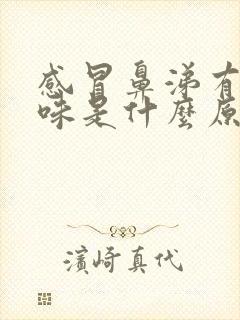 感冒鼻涕有
味是什麼原
濱崎真代